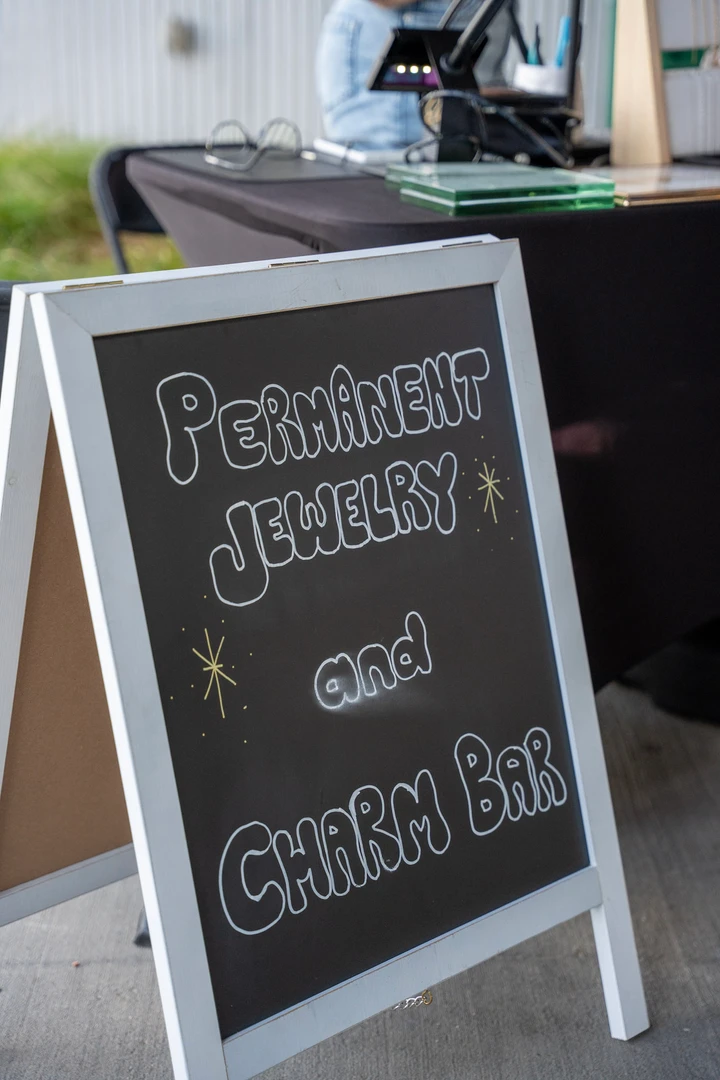 PERMANENT
JEWELRY
and
CHARM BAR